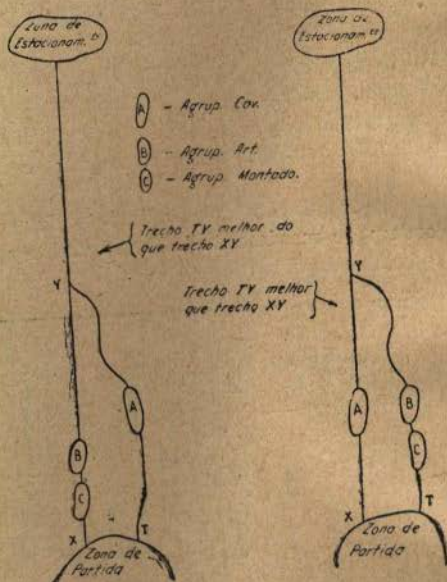 Zona de
Estacionam.to
Zona de
Estacionam.to
A - Agrup. Cav.
B - Agrup. Art.
C - Agrup. Montado.
Trecho TY melhor do
que trecho XY
Y
Trecho TY melhor
que trecho XY
Y
A
B
C
X
T
Zona de
Partida
A
B
C
X
T
Zona de
Partida